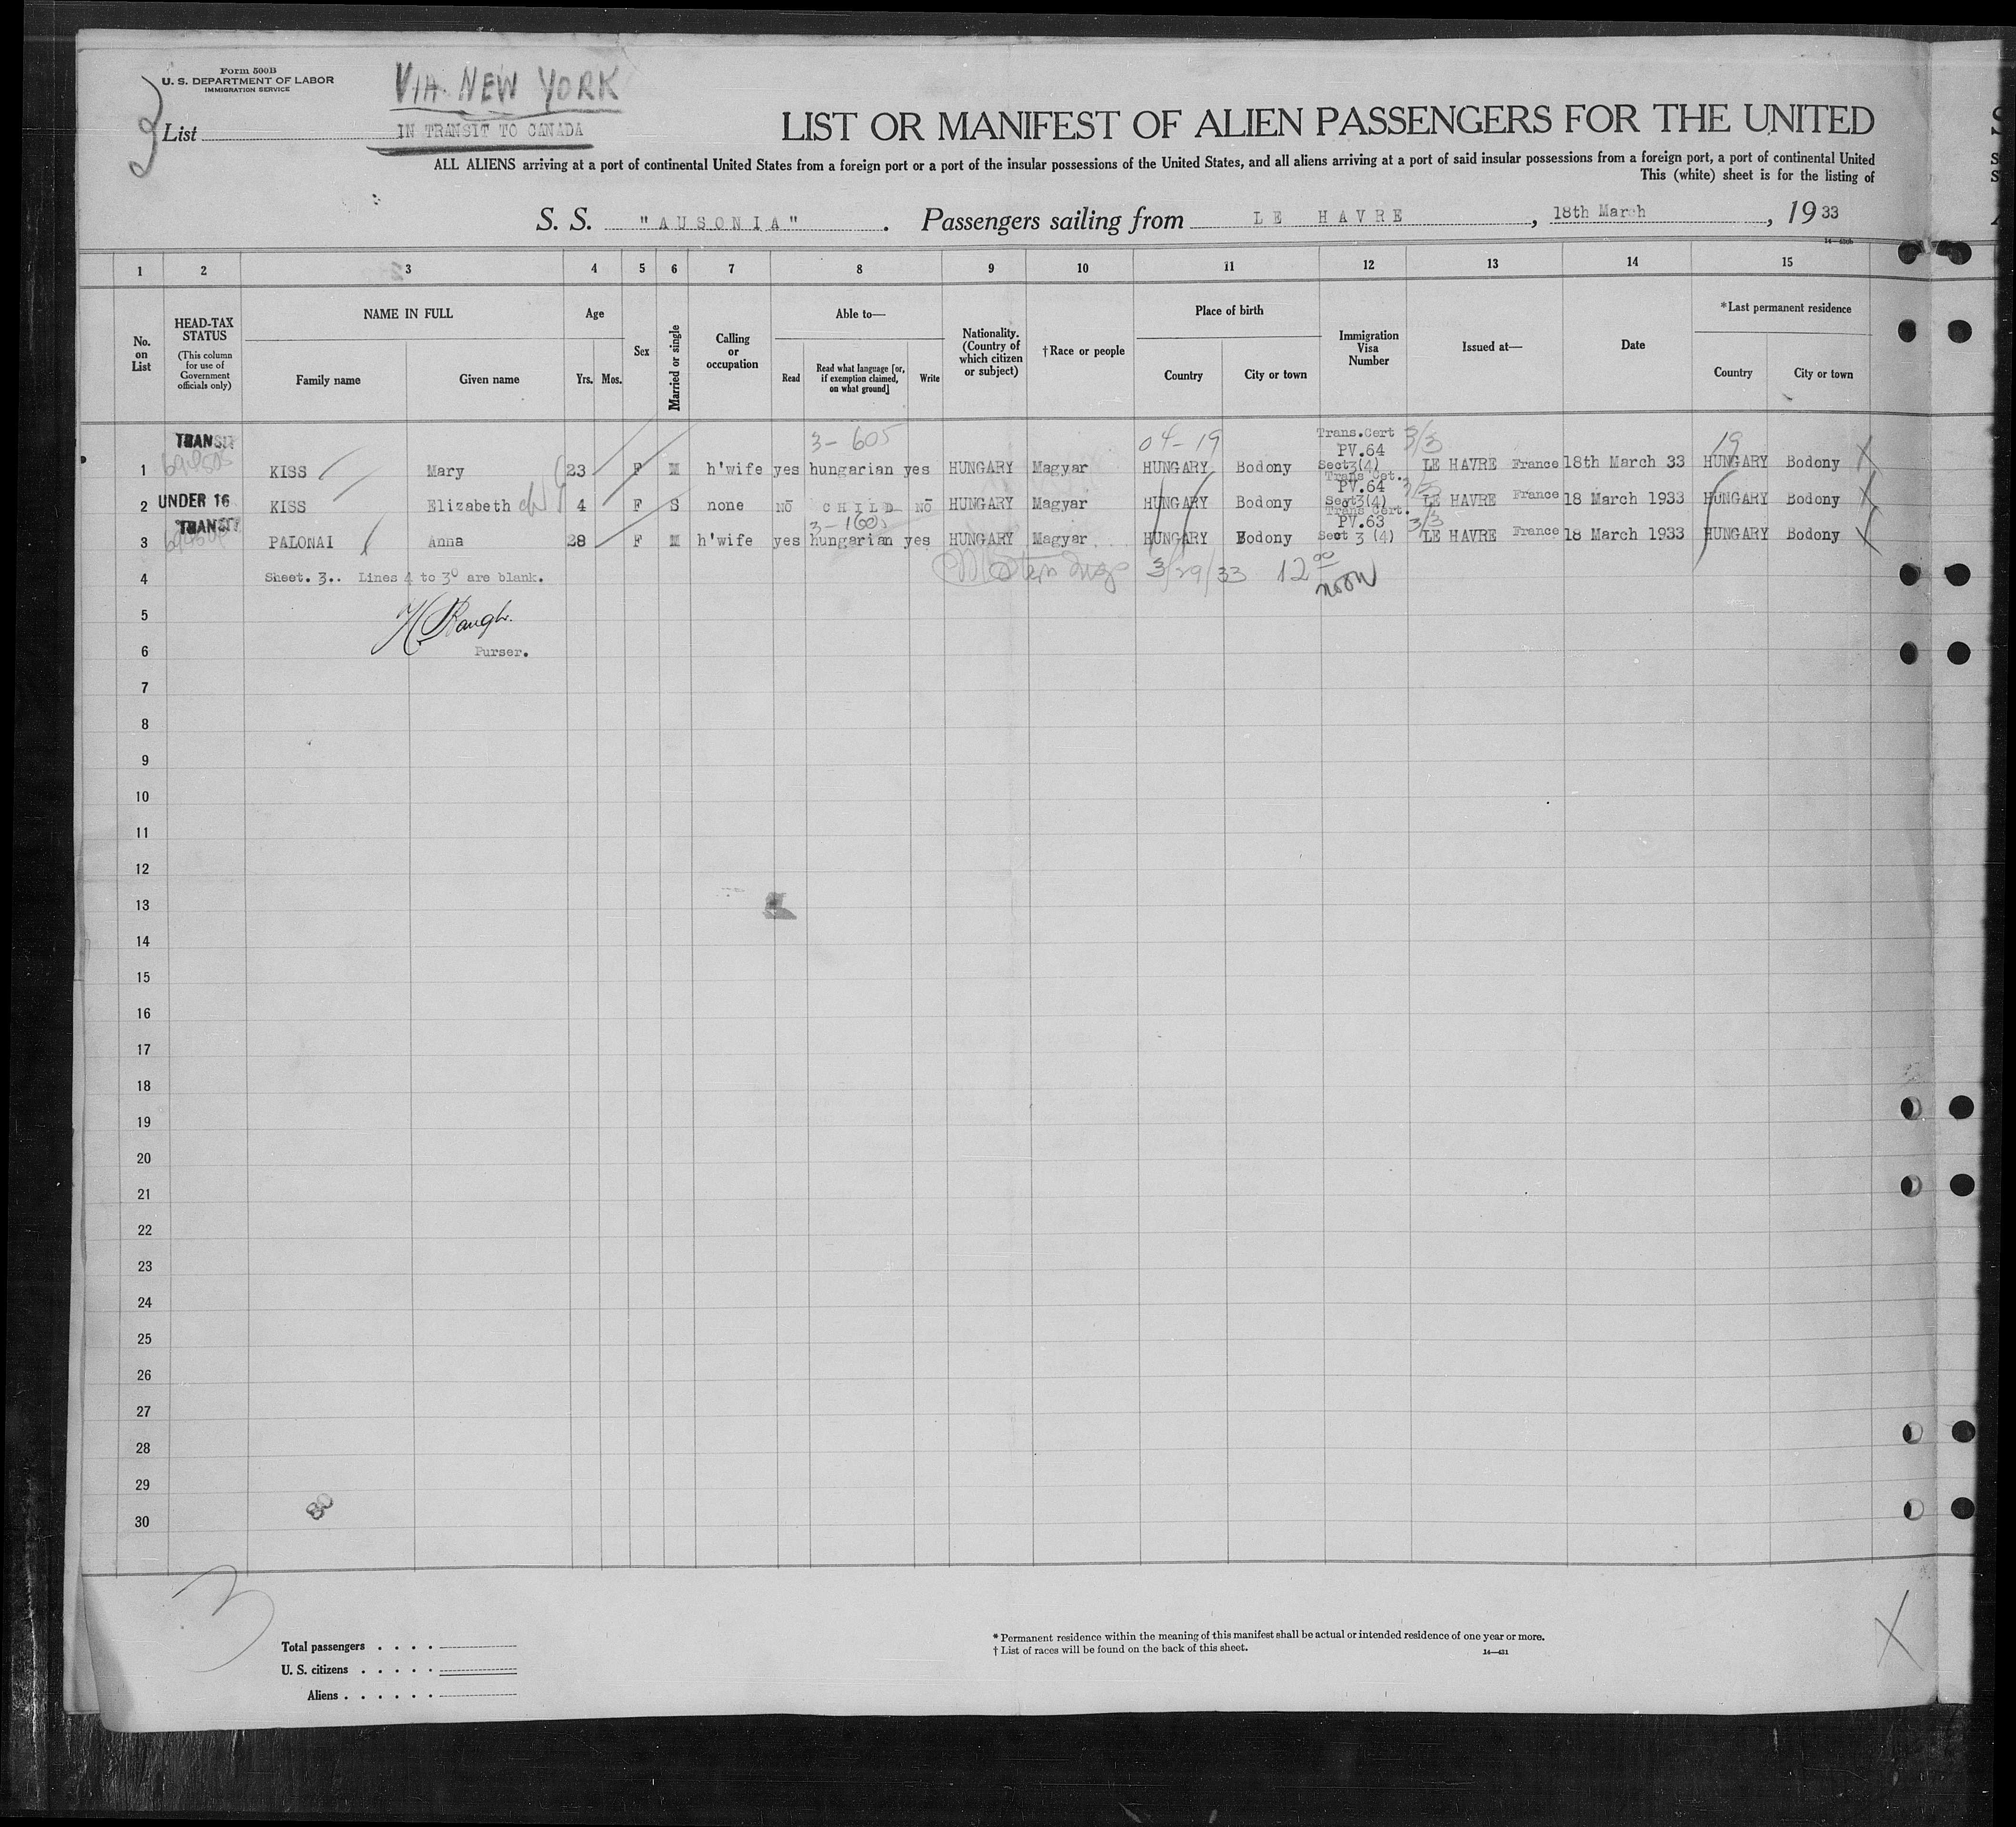 Form 500B
U. S. DEPARTMENT OF LABOR
IMMIGRATION SERVICE
VIA NEW YORK
3 List IN TRANSIT TO CANADA
LIST OR MANIFEST OF ALIEN PASSENGERS FOR THE UNITED
ALL ALIENS arriving at a port of continental United States from a foreign port or a port of the insular possessions of the United States, and all aliens arriving at a port of said insular possessions from a foreign port, a port of continental United
This (white) sheet is for the listing of
S. S. "AUSONIA". Passengers sailing from LE HAVRE, 18th March, 1933
1 2 3 4 5 6 7 8 9 10 11 12 13 14 15
No. on List
HEAD-TAX STATUS
(This column for use of Government officials only)
NAME IN FULL
Family name
Given name
Age
Yrs. Mos.
Sex
Married or single
Calling or occupation
Able to—
Read
Read what language [or, if exemption claimed, on what ground]
Write
Nationality. (Country of which citizen or subject)
†Race or people
Place of birth
Country
City or town
Immigration Visa Number
Issued at—
Date
*Last permanent residence
Country
City or town
TRANSIT 3-605 04-19 Trans.Cert 3/3 19
PV.64
1 KISS Mary 23 F M h'wife yes hungarian yes HUNGARY Magyar HUNGARY Bodony Sect3(4) LE HAVRE France 18th March 33 HUNGARY Bodony X
Trans Cet.
PV.64 3/3
2 UNDER 16 KISS Elizabeth 4 F S none No CHILD No HUNGARY Magyar HUNGARY Bodony Sect3(4) LE HAVRE France 18 March 1933 HUNGARY Bodony X
Trans Cert.
TRANSIT PV.63 3/3
3 PALONAI Anna 28 F M h'wife yes hungarian yes HUNGARY Magyar HUNGARY Bodony Sect 3 (4) LE HAVRE France 18 March 1933 HUNGARY Bodony X
4 Sheet. 3.. Lines 4 to 30 are blank. 3/29/33 12 00 noon
5
6 Purser.
7
8
9
10
11
12
13
14
15
16
17
18
19
20
21
22
23
24
25
26
27
28
29
30
80
3
X
Total passengers . . . .
U. S. citizens . . . . .
Aliens . . . . . .
* Permanent residence within the meaning of this manifest shall be actual or intended residence of one year or more.
† List of races will be found on the back of this sheet.
14—431